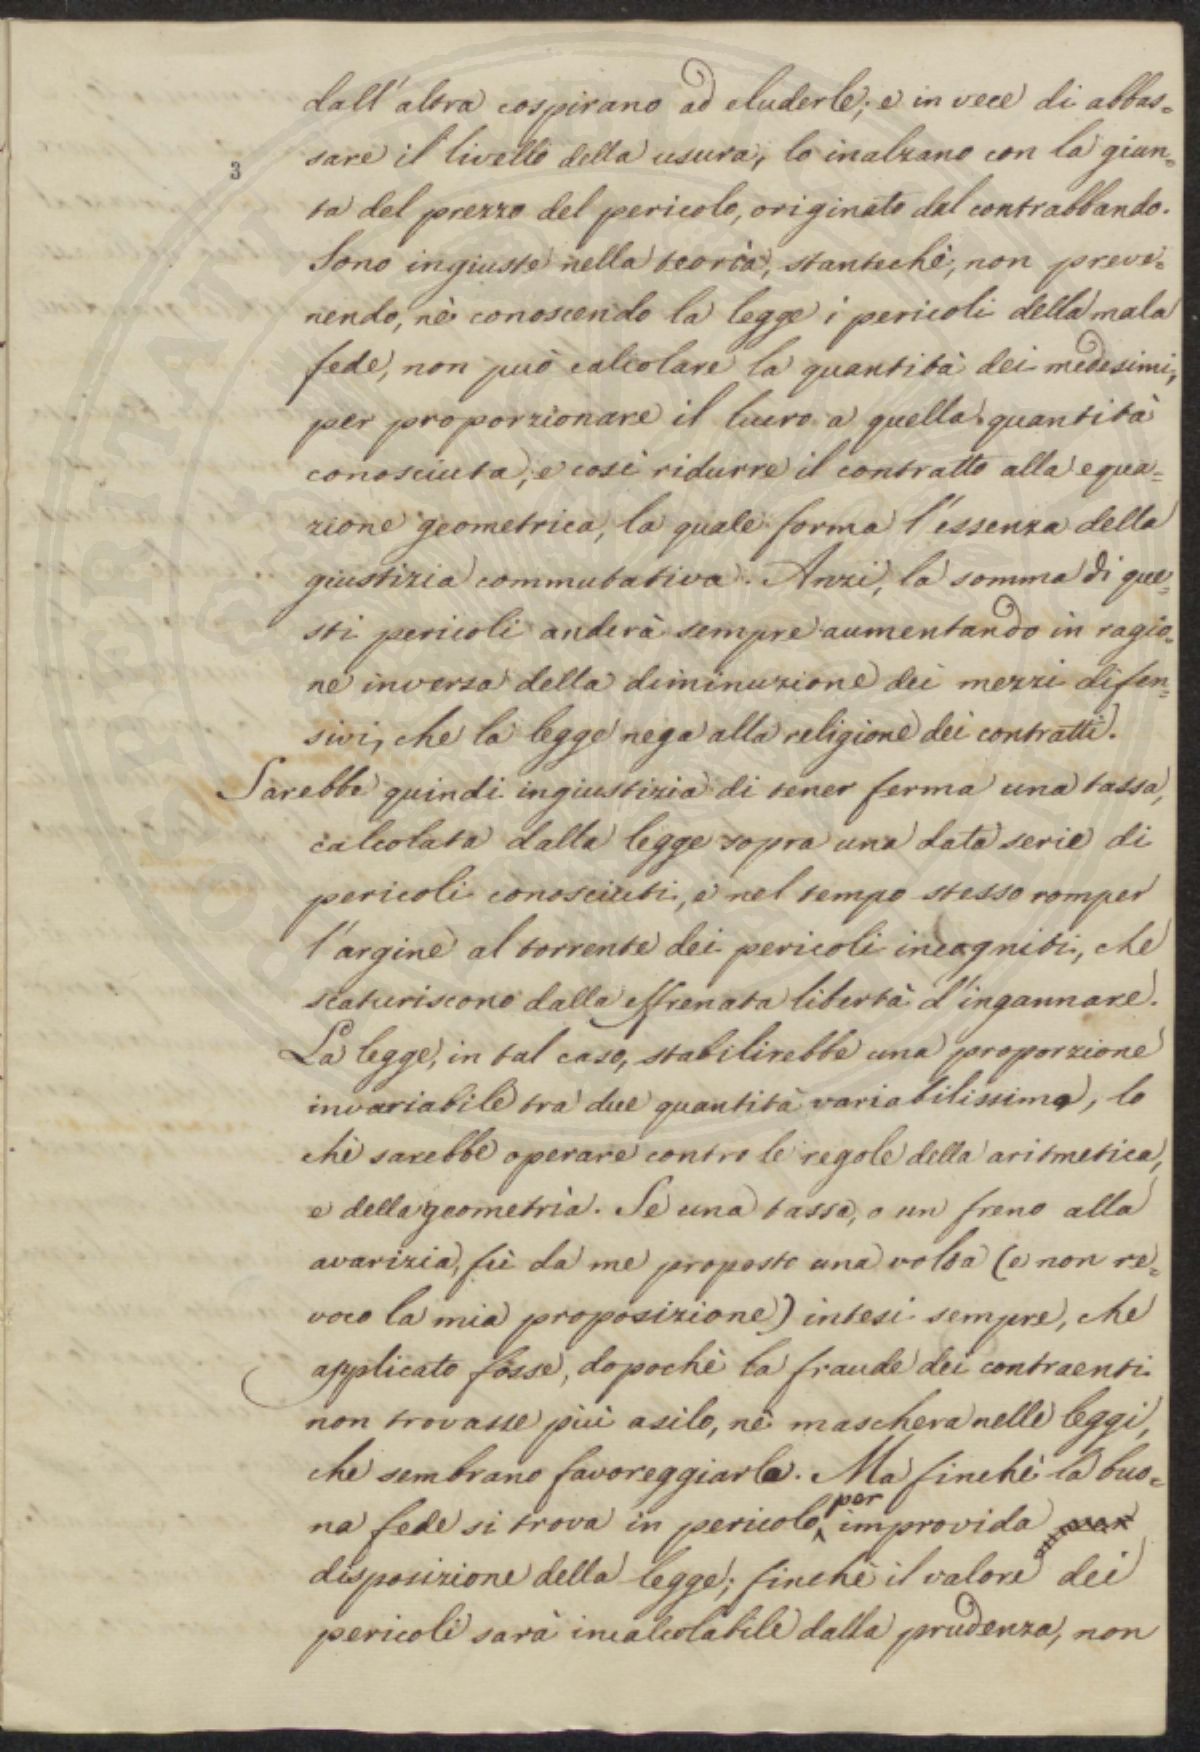 dall'altra cospirano ad eluderle; e in vece di abbas=
sare il livello della usura, lo inalzano con la giun=
3
ta del prezzo del pericolo, originato dal contrabbando.
Sono ingiuste nella teoria, stantechè, non preve=
nendo, nè conoscendo la legge i pericoli della mala
fede, non può calcolare la quantità dei medesimi,
per proporzionare il lucro a quella quantità
conosciuta; e così ridurre il contratto alla equa=
zione geometrica, la quale forma l'essenza della
giustizia commutativa. Anzi, la somma di que=
sti pericoli anderà sempre aumentando in ragio=
ne inversa della diminuzione dei mezzi difen=
sivi, che la legge nega alla religione dei contratti.
Sarebbe quindi ingiustizia di tener ferma una tassa,
calcolata dalla legge sopra una data serie di
pericoli conosciuti, e nel tempo stesso romper
l'argine al torrente dei pericoli incogniti, che
scaturiscono dalla effrenata libertà d'ingannare.
La legge, in tal caso, stabilirebbe una proporzione
invariabile tra due quantità variabilissime, lo
chè sarebbe operare contro le regole della aritmetica,
e della geometria. Se una tassa, o un freno alla
avarizia, fù da me proposto una volta (e non re=
voco la mia proposizione) intesi sempre, che
applicato fosse, dopochè la fraude dei contraenti
non trovasse più asilo, nè maschera nelle leggi,
che sembrano favoreggiarla. Ma finchè la buo=
na fede si trova in pericolo, per improvida
disposizione della legge; finchè il valore dei
pericoli sarà incalcolabile dalla prudenza, non